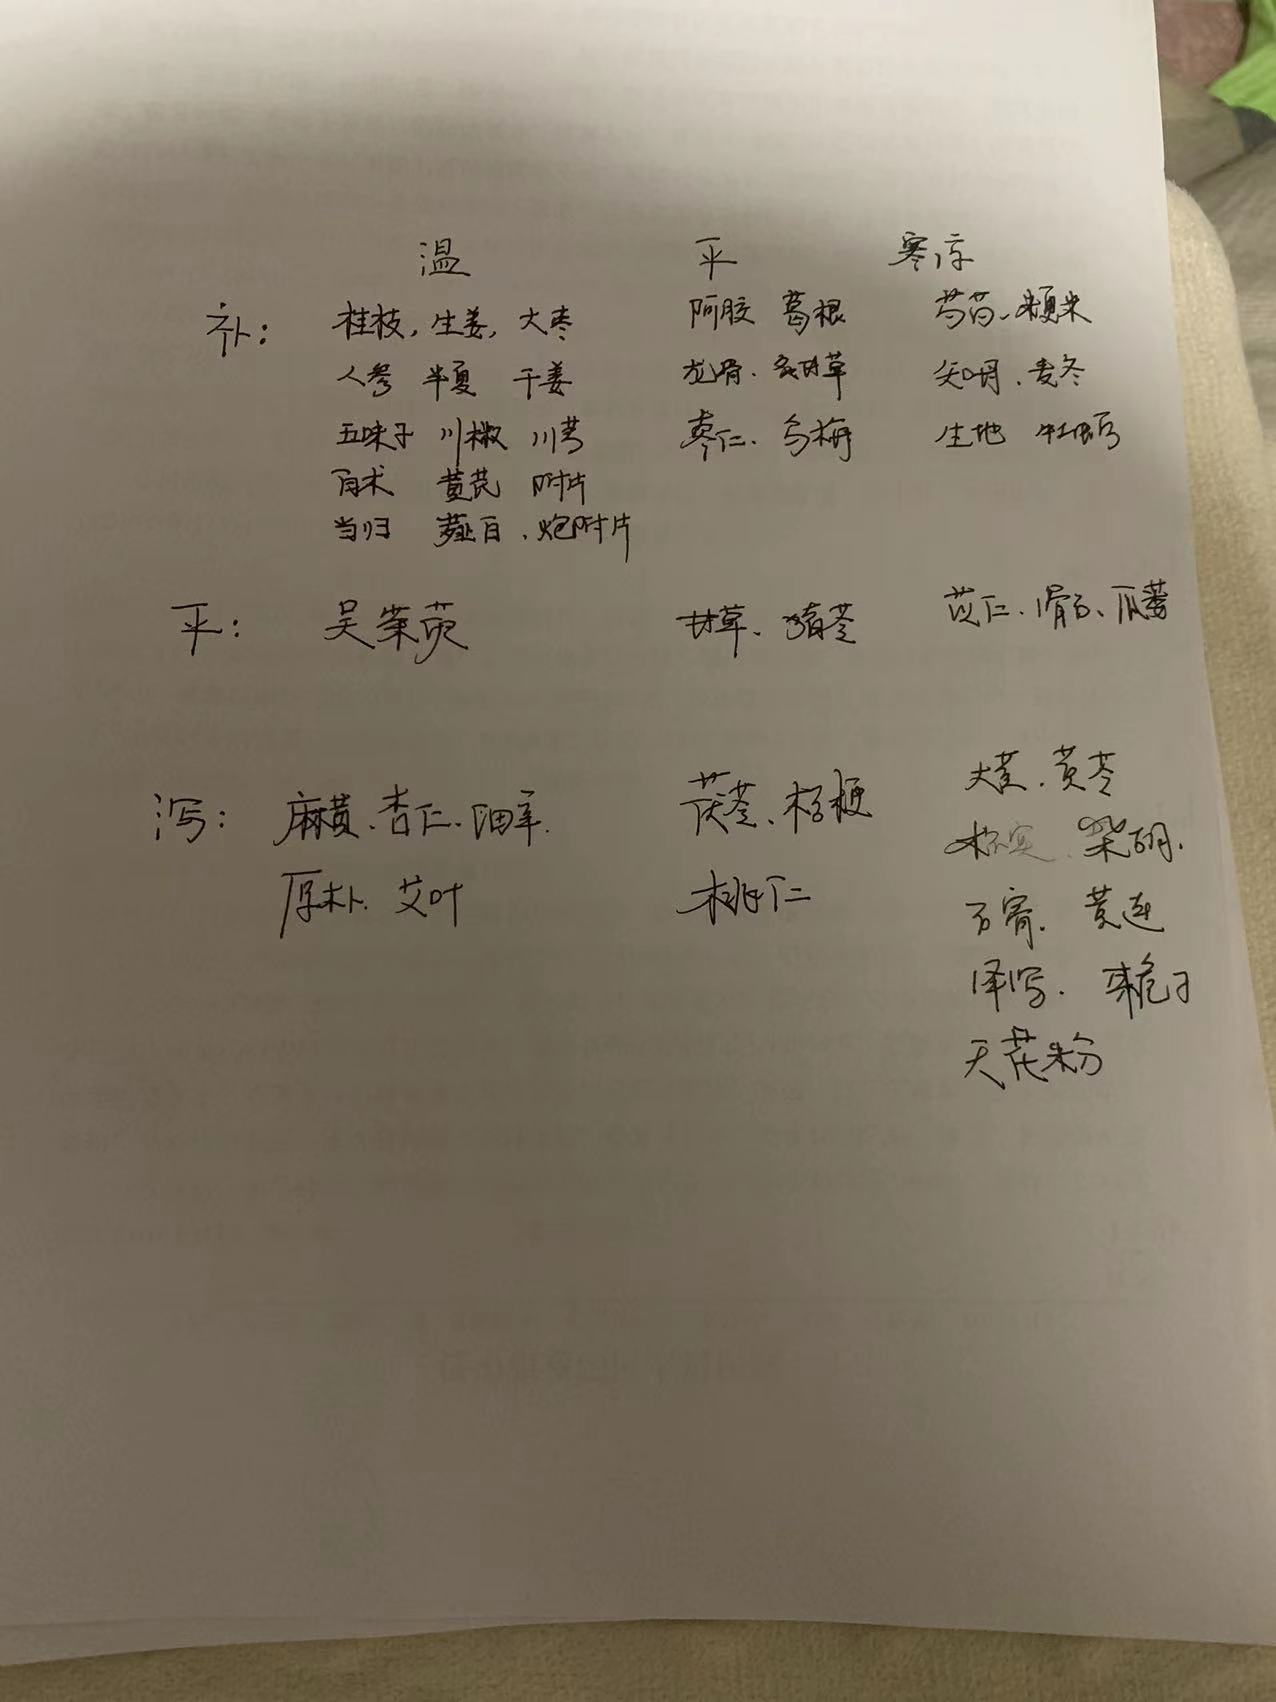 温 平 寒凉
补: 桂枝, 生姜, 大枣 阿胶 葛根 芍药、粳米
人参 半夏 干姜 龙骨. 炙甘草 知母、麦冬
五味子 川椒 川芎 枣仁. 乌梅 生地 牡蛎
白术 黄芪 附片
当归 薤白、炮附片
平: 吴茱萸 甘草、猪苓 苡仁、滑石、瓜蒌
泻: 麻黄、杏仁、细辛. 茯苓、桔梗 大黄、黄芩
厚朴. 艾叶 桃仁 枳实、柴胡.
石膏. 黄连
泽泻. 栀子
天花粉